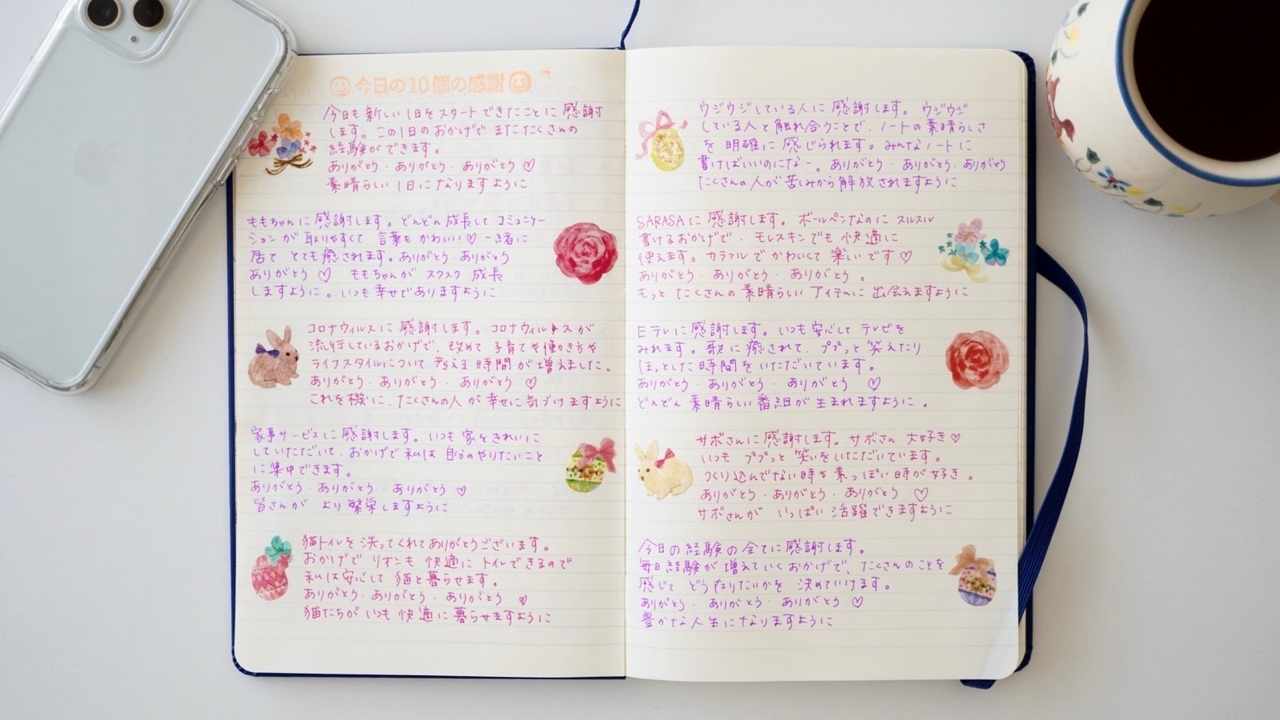 今日の10個の感謝
今日も新しい1日をスタートできたことに感謝
します。この1日のおかげで またたくさんの
経験ができます。
ありがとう・ありがとう・ありがとう♡
素晴らしい1日になりますように
ももちゃんに感謝します。どんどん成長して コミュニケー
ションが取りやすくて 言葉もかわいい♡ 一緒に
居て とても癒されます。ありがとう ありがとう
ありがとう♡ ももちゃんが スクスク 成長
しますように。いつも幸せでありますように
コロナウィルスに感謝します。コロナウィルスが
流行しているおかげで、改めて 子育てや働き方や
ライフスタイルについて 考える時間が増えました。
ありがとう・ありがとう・ありがとう♡
これを機に、たくさんの人が幸せに気づけますように
家事サービスに感謝します。いつも 家をきれいに
していただいて、おかげで私は 自分のやりたいこと
に集中できます。
ありがとう ありがとう・ありがとう♡
皆さんが より繁栄しますように
猫トイレを洗ってくれてありがとうございます。
おかげで リオンも 快適に トイレできるので
私は安心して 猫と暮らせます。
ありがとう・ありがとう・ありがとう♡
猫たちが いつも 快適に暮らせますように
ウジウジしている人に 感謝します。ウジウジ
している人と触れ合うことで、ノートの素晴らしさ
を 明確に感じられます。みんなノートに
書けばいいのになー。ありがとう・ありがとう・ありがとう
たくさんの人が苦しみから解放されますように
SARASAに感謝します。ボールペンなのに スルスル
書けるおかげで・モレスキンでも快適に
使えます。カラフルでかわいくて 楽しいです♡
ありがとう・ありがとう・ありがとう。
もっと たくさんの素晴らしい アイテムに出会えますように
Eテレに感謝します。いつも安心して テレビを
みれます。歌に癒されて、ププっと笑えたり
ほっとした時間を いただいています。
ありがとう・ありがとう・ありがとう ♡
どんどん 素晴らしい番組が生まれますように。
サボさんに感謝します。サボさん 大好き♡
いつも ププっと 笑いをいただいています。
つくり込んでない時も素っぽい時が好き。
ありがとう・ありがとう・ありがとう ♡
サボさんが いっぱい 活躍できますように
今日の経験の全てに感謝します。
毎日経験が増えていくおかげで、たくさんのことを
感じて どうなりたいかを 決めていけます。
ありがとう・ありがとう・ありがとう♡
豊かな人生になりますように